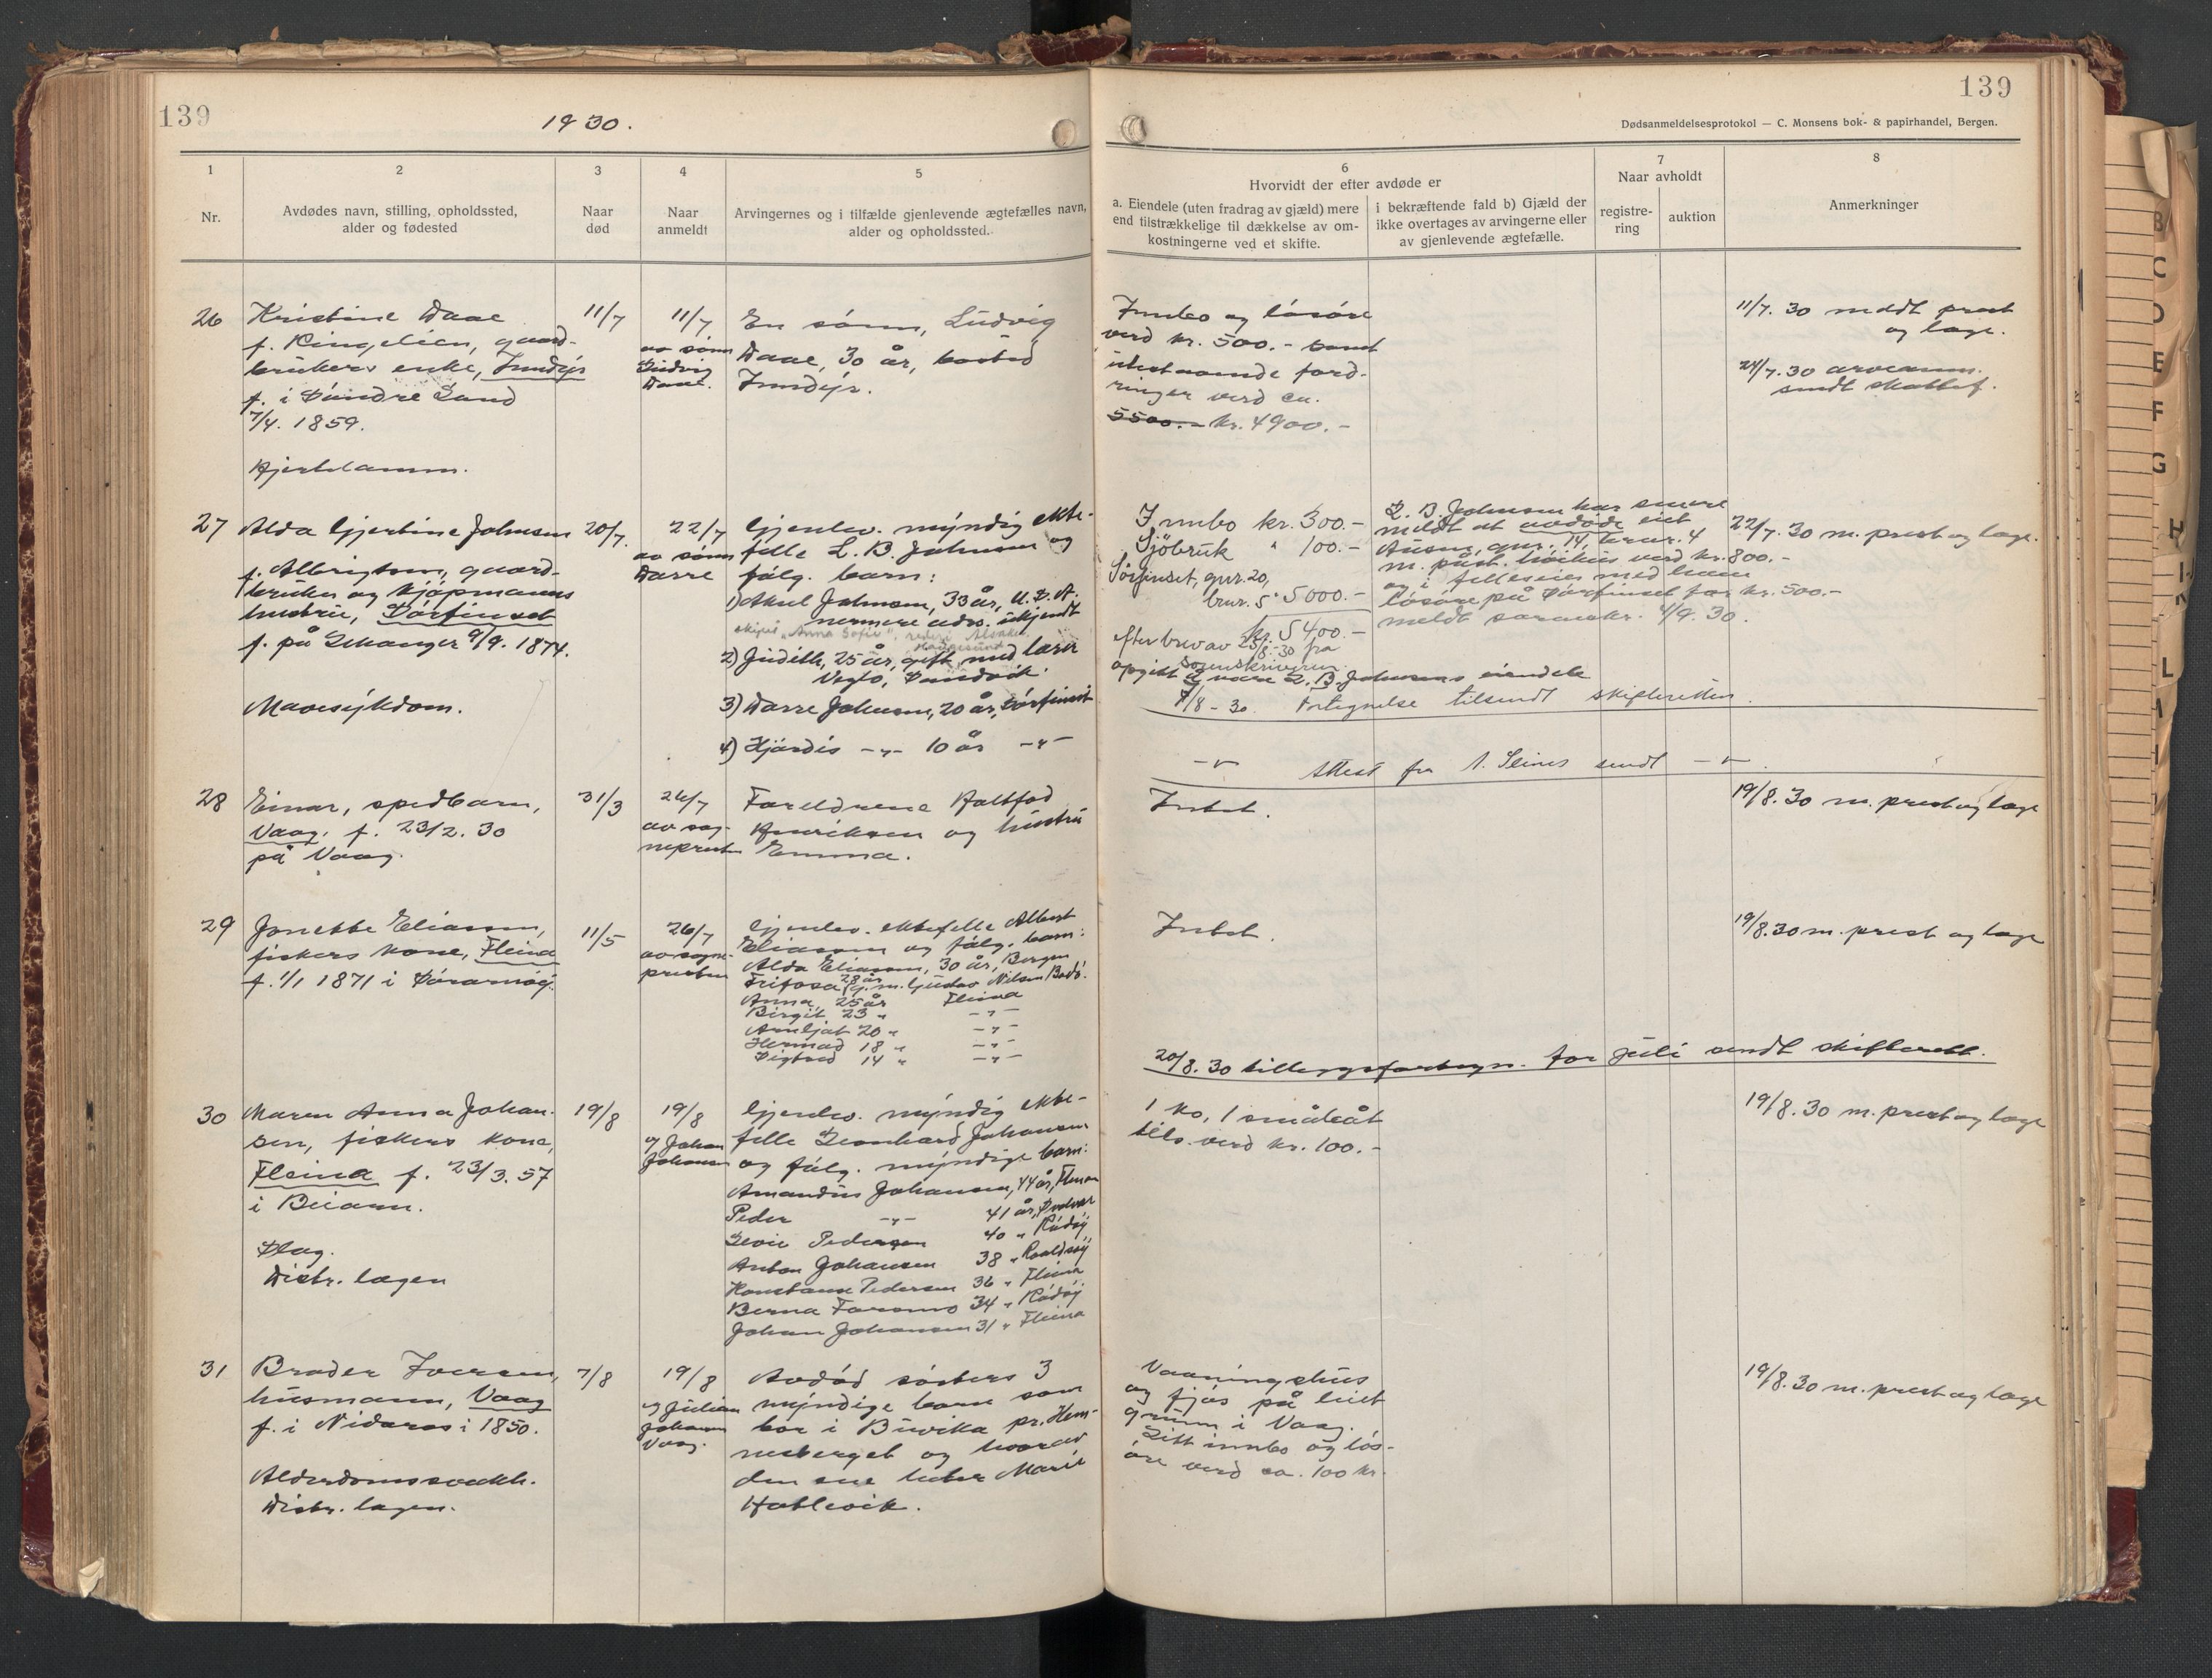 139
1930.
139
Dødsanmeldelsesprotokol — C. Monsens bok- & papirhandel, Bergen.
1
Nr.
2
Avdødes navn, stilling, opholdssted,
alder og fødested
3
Naar
død
4
Naar
anmeldt
5
Arvingernes og i tilfælde gjenlevende ægtefælles navn,
alder og opholdssted.
6
Hvorvidt der efter avdøde er
a. Eiendele (uten fradrag av gjæld) mere
end tilstrækkelige til dækkelse av om-
kostningerne ved et skifte.
i bekræftende fald b) Gjæld der
ikke overtages av arvingerne eller
av gjenlevende ægtefælle.
7
Naar avholdt
registre-
ring
auktion
8
Anmerkninger
26
Kristine Daae
f. Ringelien, gaard-
brukers enke, Inndyr
f. i Søndre Land
7/4. 1859.
Hjertelamm.
11/7
11/7
av sønn
Ludvig
Daae.
En sønn, Ludvig
Daae, 30 år, bosted
Inndyr.
Innbo og løsøre
verd kr. 500.- samt
utestaaende ford-
ringer verd ca.
5500.- kr. 4900.-
11/7. 30 meldt prest
og læge.
24/7. 30 arveanm.
sendt skattef.
27
Alda Gjertine Johnsen
f. Albrigtsen, gaard-
bruker og kjøpmanns
hustru, Sørfinset
f. på Selvanger 9/9. 1874.
Mavesykdom.
20/7.
22/7
av sønn
Darre
Gjenlev. myndig ekte-
felle L. B. Johnsen og
følg. barn:
1) Aksel Johnsen, 33 år, U.S.A.
nermere adrs. ukjendt
skipet "Anna Sofie", rederi
Haugesund
2) Judith, 25 år, gift med lærer
Vegto, Sandvik.
3) Darre Johnsen, 20 år, Sørfinset
4) Hjørdis -"- 10 år -"-
Innbo kr. 300.-
Sjøbruk " 100.-
Sørfinset, gnr. 20,
brnr. 5 " 5000.-
kr. 5400.-
efter brev av 23/8-30 fra
sorenskriveren
opgitt å være L. B. Johnsens eiendele
7/8-30. Fortegnelse tilsendt skifteretten.
L. B. Johnsen har senere
meldt at avdøde eiet
Ausen, gnr. 14, brnr. 4
m. påst. höihus verd kr. 800.-
og i felleseie med ham
løsøre på Sørfinset for kr. 500.-
meldt sorenskr. 4/9. 30.
22/7. 30 m. prest og læge.
-"- Attest fra A. Seines sendt -"-
28
Einar, spedbarn,
Vaag. f. 23/2. 30
på Vaag.
31/3
26/7
av sog-
nepresten
Foreldrene Halftod
Henriksen og hustru
Emma.
Intet.
19/8. 30 m. prest og læge
29
Janette Eliassen,
fiskers kone, Fleina
f. 1/1 1871 i Søramøy.
11/5
26/7
av sogne-
presten
Gjenlev. ektefelle Albert
Eliassen og følg. barn:
Alda Eliassen, 30 år, Bergen
Trifosa 28 år g. m. Gustav Nilsen Bodø.
Anna, 25 år Fleina
Birgit 23 " -"-
Arnljot 20 " -"-
Hermod 18 " -"-
Sigtrod 14 " -"-
Intet.
19/8. 30 m. prest og læge
20/8. 30 tilleggsfortegn. for juli sendt skifterett.
30
Maren Anna Johan-
sen, fiskers kone,
Fleina f. 23/3. 57
i Beiarn.
Slag.
Distr. lægen
19/8
19/8
av Johan
Johansen
Gjenlev. myndig ekte-
felle Leonhard Johansen
og følg. myndige barn:
Amandus Johansen, 44 år, Fleina
Peder -"- 41 år, Svolvær
Levie Pedersen 40 " Rödöy
Anton Johansen 38 " Roaldsøy
Konstanse Pedersen 36 " Fleina
Berna Faremo 34 " Rödöy
Johan Johansen 31 " Fleina
1 ko, 1 småbåt
tils. verd kr. 100.-
19/8. 30 m. prest og læge
31
Broder Iversen,
husmann, Vaag
f. i Nidaros i 1850.
Alderdomssvakh.
Distr. lægen.
7/8
19/8
av Julian
Johansen
Vaag.
Avdød søsters 3
myndige barn som
bor i Buvika pr. Hem-
nesberget og hvorav
den ene heter Marie
Hattevik.
Vaaningshus
og fjøs på leiet
grunn i Vaag.
Litt innbo og løs-
øre verd ca. 100 kr.
19/8. 30 m. prest og læge
B
C
D
E
F
G
H
K
L